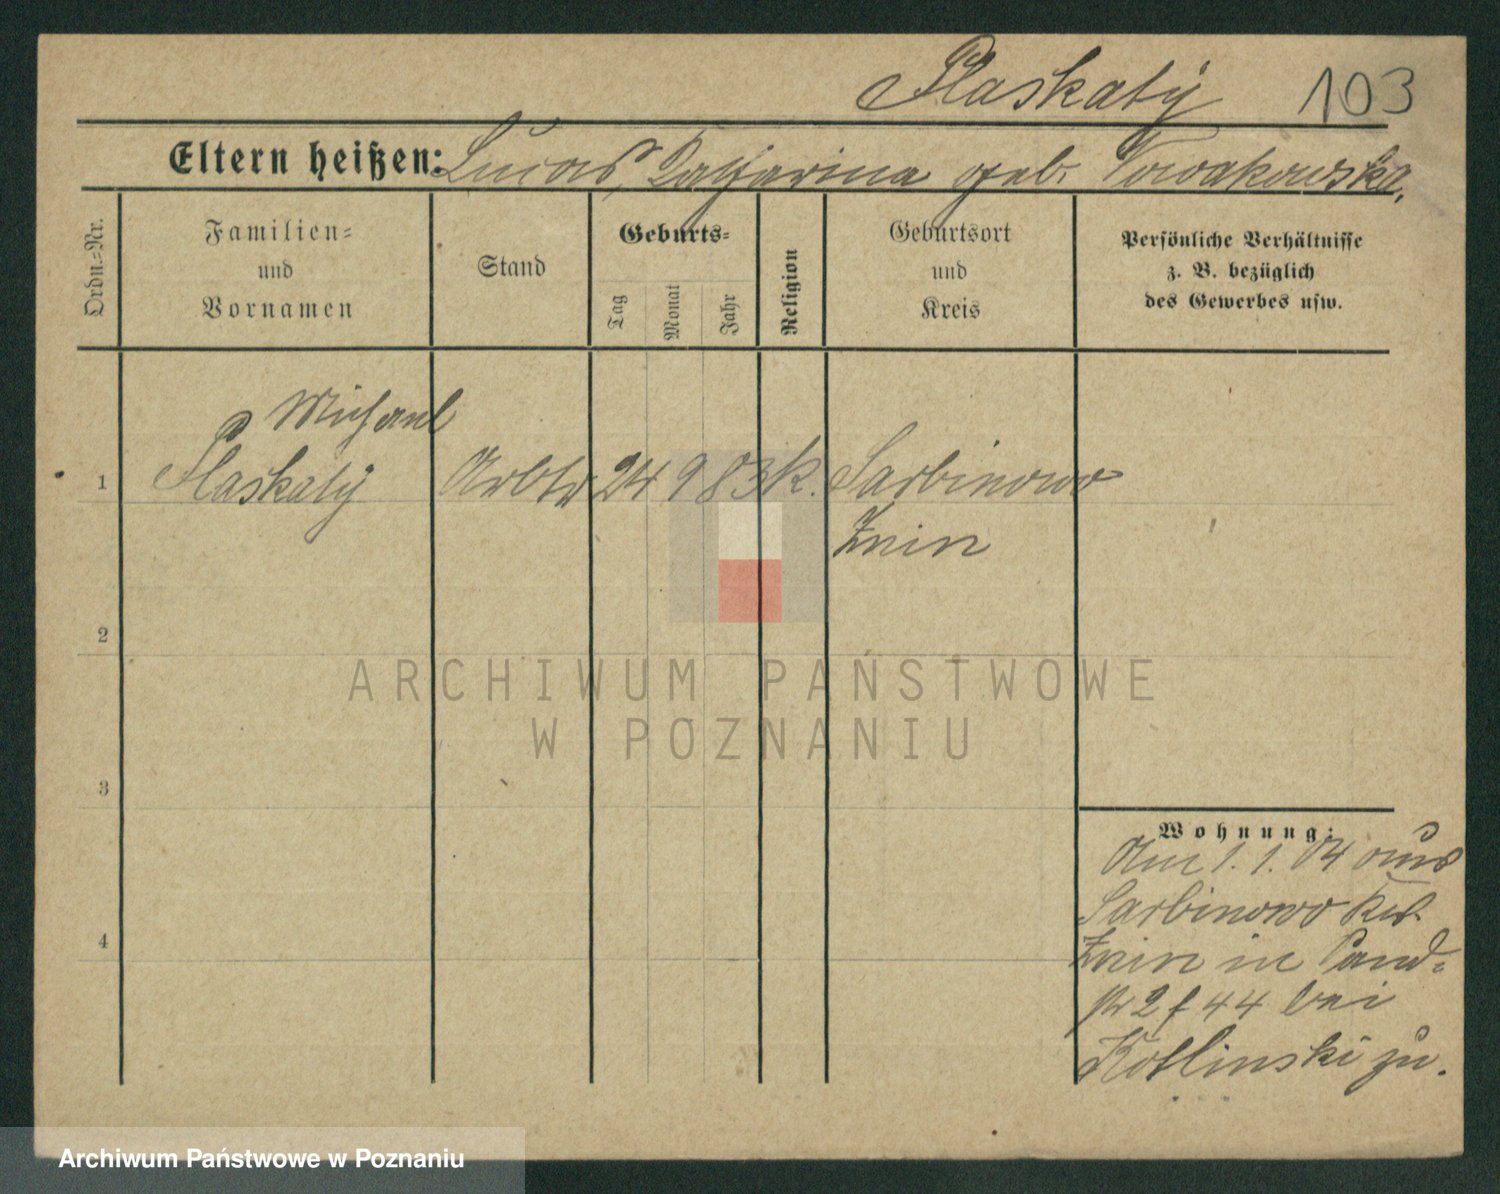 Plaskaty 103
Eltern heißen: Lucas, Katharina geb. Nowakowska,
Ordn.-Nr.
Familien-
und
Vornamen
Stand
Geburts-
Tag
Monat
Jahr
Religion
Geburtsort
und
Kreis
Persönliche Verhältnisse
z. B. bezüglich
des Gewerbes usw.
Michael
1 Plaskaty Arbtr 24 9 83 k. Sarbinowo
Znin
2
3
4
Wohnung:
Am 1. 1. 04 aus
Sarbinowo Krs.
Znin in
44 bei
Kotlinski zu.
ARCHIWUM PAŃSTWOWE
W POZNANIU
Archiwum Państwowe w Poznaniu